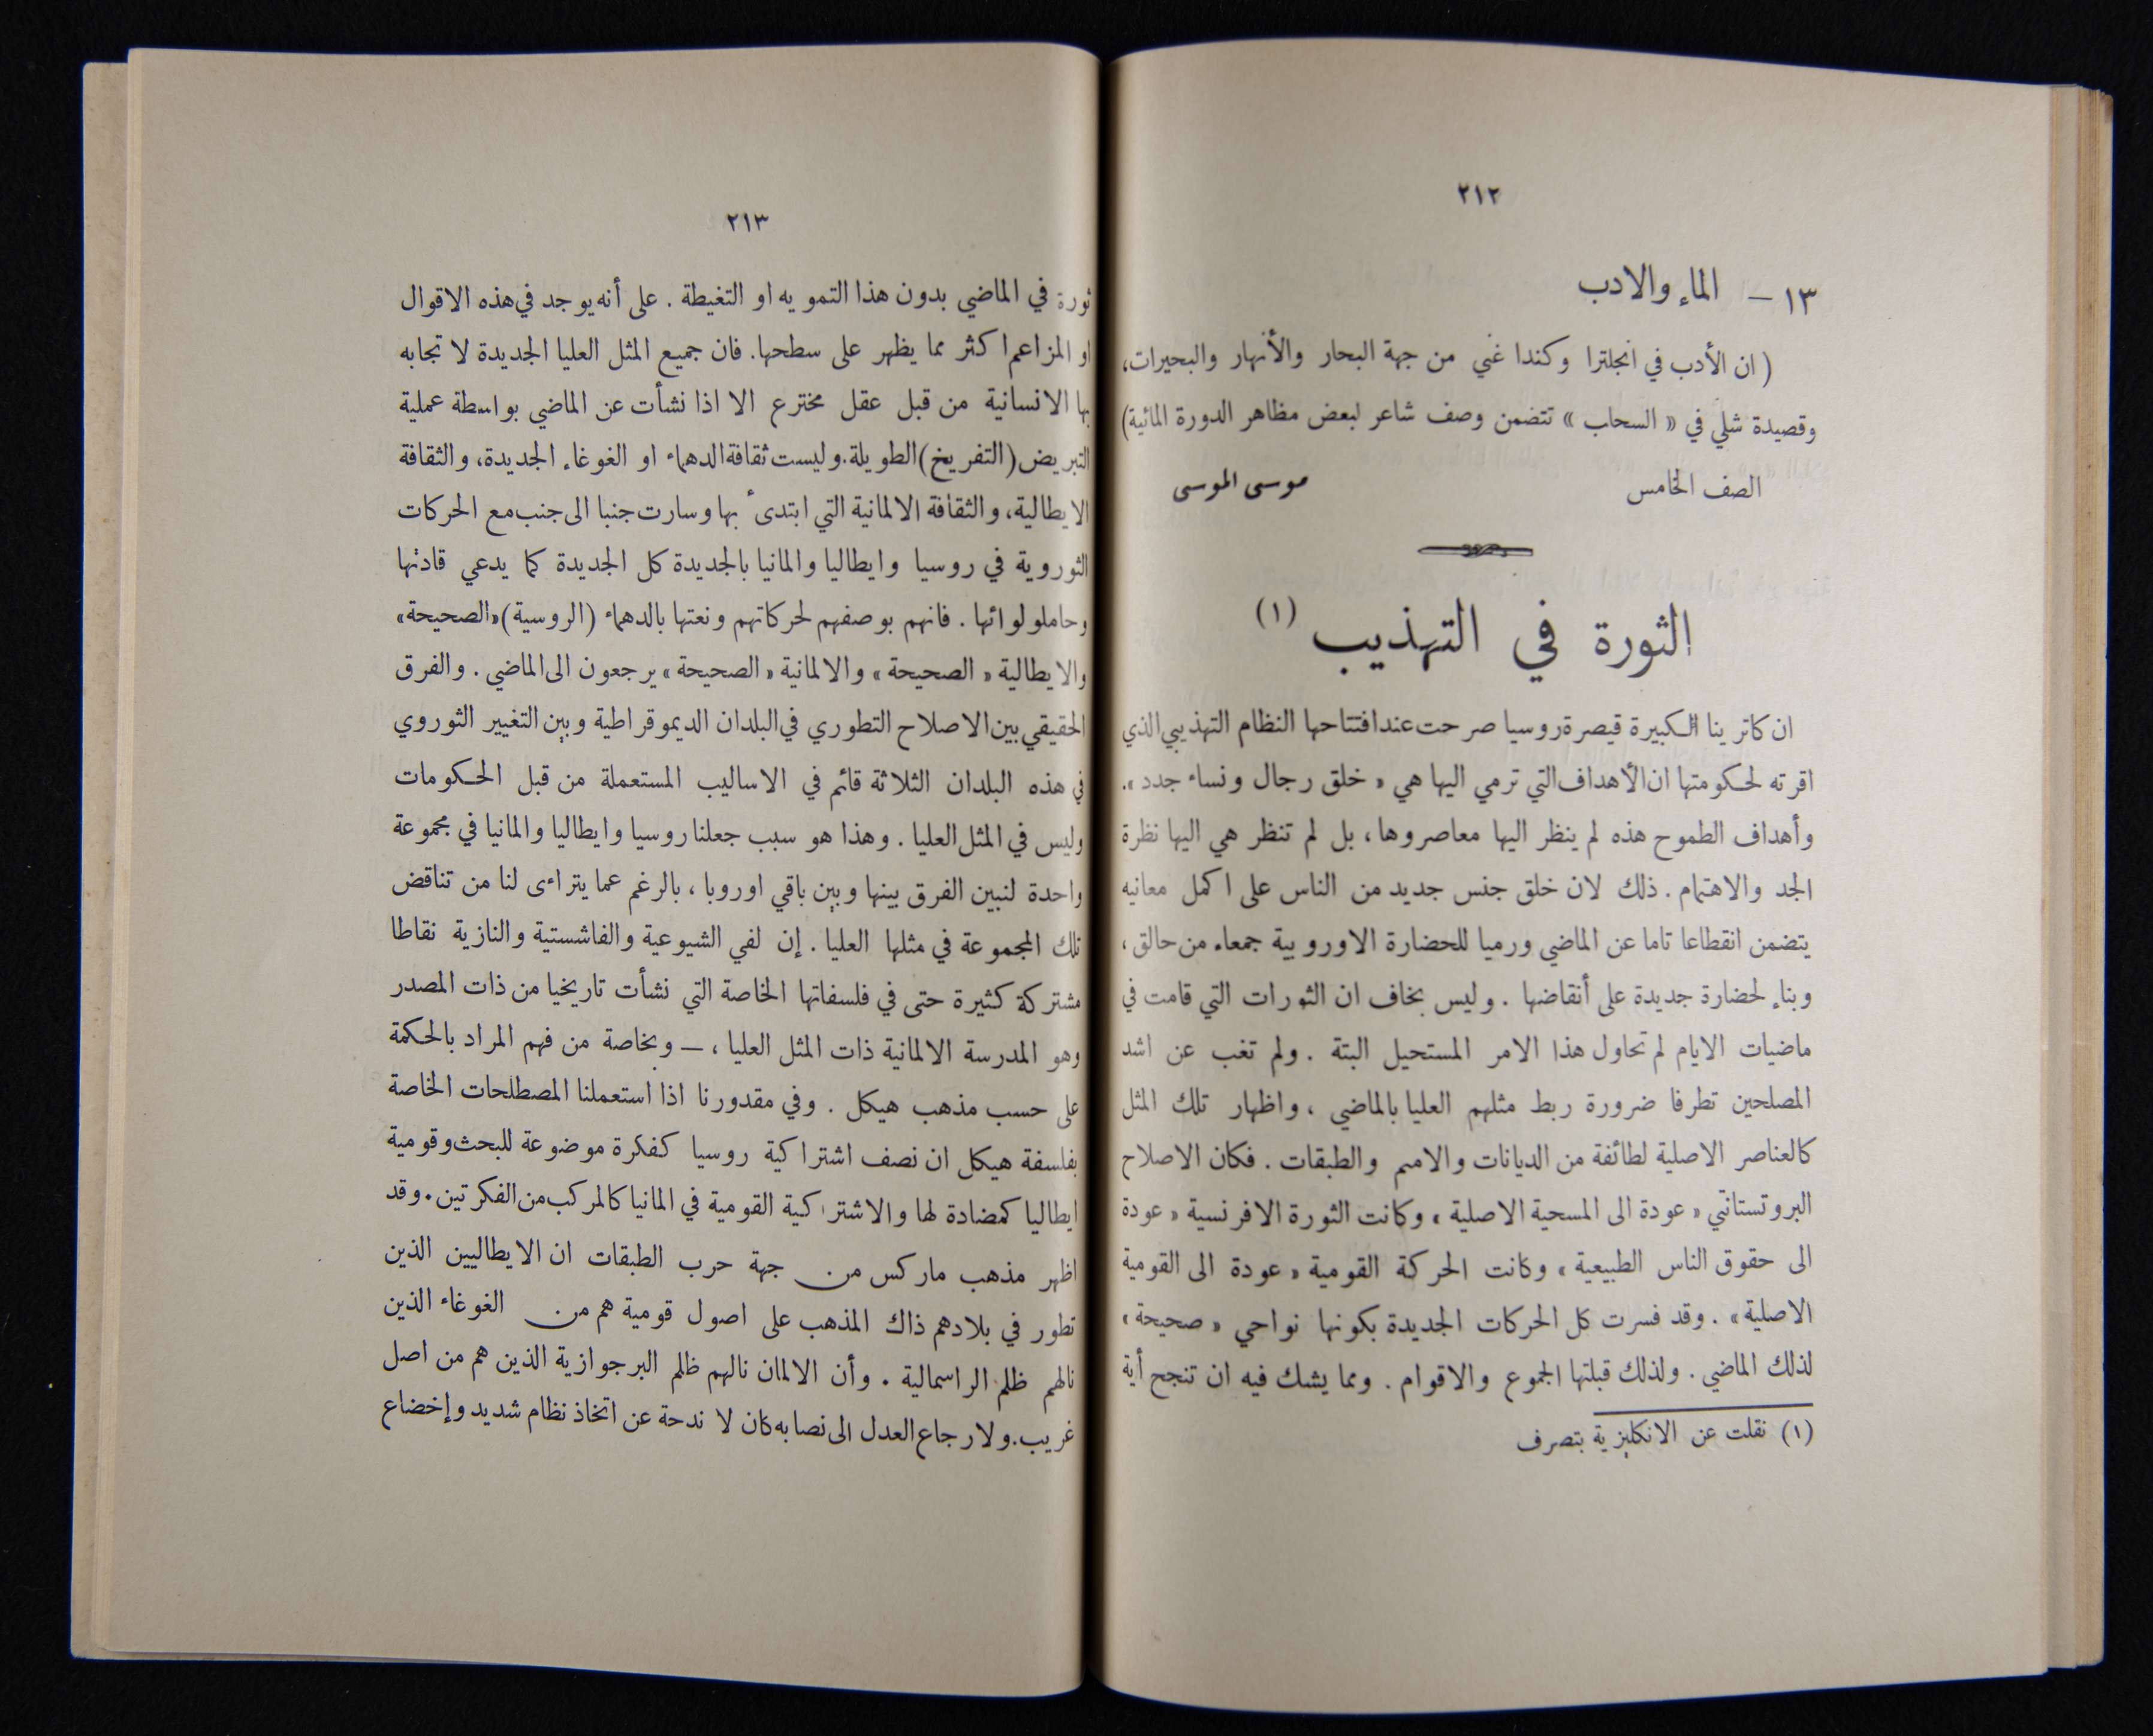 ٢١٢
١٣ – الماء والادب
( ان الأدب في انجلترا وكندا غني من جهة البحار والأنهار والبحيرات،
وقصيدة شلي في « السحاب » تتضمن وصف شاعر لبعض مظاهر الدورة المائية)
الصف الخامس موسى الموسى
الثورة في التهذيب (١)
ان كاترينا الكبيرة قيصرة روسيا صرحت عند افتتاحها النظام التهذيبي الذي
اقرته لحكومتها ان الأهداف التي ترمي اليها هي « خلق رجال ونساء جدد ».
وأهداف الطموح هذه لم ينظر اليها معاصروها، بل لم تنظر هي اليها نظرة
الجد والاهتمام. ذلك لان خلق جنس جديد من الناس على اكمل معانيه
يتضمن انقطاعا تاما عن الماضي ورميا للحضارة الاوروبية جمعاء من حالق،
وبناء لحضارة جديدة على أنقاضها . وليس بخاف ان الثورات التي قامت في
ماضيات الايام لم تحاول هذا الامر المستحيل البتة . ولم تغب عن اشد
المصلحين تطرفا ضرورة ربط مثلهم العليا بالماضي ، واظهار تلك المثل
كالعناصر الاصلية لطائفة من الديانات والامم والطبقات . فكان الاصلاح
البروتستانتي « عودة الى المسحية الاصلية » وكانت الثورة الافرنسية « عودة
الى حقوق الناس الطبيعية » وكانت الحركة القومية « عودة الى القومية
الاصلية» . وقد فسرت كل الحركات الجديدة بكونها نواحي « صحيحة »
لذلك الماضي . ولذلك قبلتها الجموع والاقوام . ومما يشك فيه ان تنجح أية
(١) نقلت عن الانكليزية بتصرف
٢١٣
ثورة في الماضي بدون هذا التمويه او التغيطة . على أنه يوجد في هذه الاقوال
او المزاعم اكثر مما يظهر على سطحها. فان جميع المثل العليا الجديدة لا تجابه
بها الانسانية من قبل عقل مخترع الا اذا نشأت عن الماضي بواسطة عملية
التبريض (التفريخ) الطويلة. وليست ثقافة الدهماء او الغوغاء الجديدة، والثقافة
الايطالية، والثقافة الالمانية التي ابتدىء بها وسارت جنبا الى جنب مع الحركات
الثوروية في روسيا وايطاليا والمانيا بالجديدة كل الجديدة كما يدعي قادتها
وحاملو لوائها . فانهم بوصفهم لحركاتهم ونعتها بالدهماء (الروسية) «الصحيحة»
والايطالية « الصحيحة » والالمانية « الصحيحة » يرجعون الى الماضي . والفرق
الحقيقي بين الاصلاح التطوري في البلدان الديموقراطية وبين التغيير الثوروي
في هذه البلدان الثلاثة قائم في الاساليب المستعملة من قبل الحكومات
وليس في المثل العليا . وهذا هو سبب جعلنا روسيا وايطاليا والمانيا في مجموعة
واحدة لنبين الفرق بينها وبين باقي اوروبا ، بالرغم عما يتراءى لنا من تناقض
تلك المجموعة في مثلها العليا . إن لفي الشيوعية والفاشستية والنازية نقاطا
مشتركة كثيرة حتى في فلسفاتها الخاصة التي نشأت تاريخيا من ذات المصدر
وهو المدرسة الالمانية ذات المثل العليا ، – وبخاصة من فهم المراد بالحكمة
على حسب مذهب هيكل . وفي مقدورنا اذا استعملنا المصطلحات الخاصة
بفلسفة هيكل ان نصف اشتراكية روسيا كفكرة موضوعة للبحث وقومية
ايطاليا كمضادة لها والاشتراكية القومية في المانيا كالمركب من الفكرتين . وقد
اظهر مذهب ماركس من جهة حرب الطبقات ان الايطاليين الذين
تطور في بلادهم ذاك المذهب على اصول قومية هم من الغوغاء الذين
نالهم ظلم الراسمالية . وأن الالمان نالهم ظلم البرجوازية الذين هم من اصل
غريب. ولارجاع العدل الى نصابه كان لا ندحة عن اتخاذ نظام شديد وإخضاع